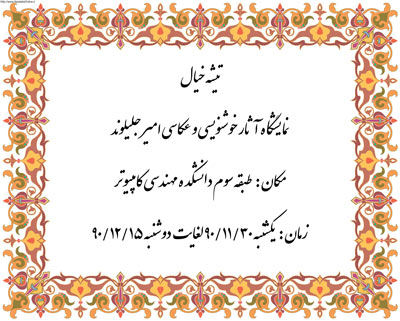 تیشه خیال
نمایشگاه آثار خوشنویسی و عکاسی امیر جلیلوند
مکان: طبقه سوم دانشکده مهندسی کامپیوتر
زمان: یکشنبه ۹۰/۱۱/۳۰ لغایت دوشنبه ۹۰/۱۲/۱۵